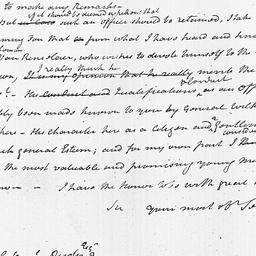 to make any Remarks
if it should be deemed expedient that
But such an office should be retained, I take
my Pen that from what I have heard and know
Van Rensselaer, who wishes to devote himself to the
I really think he
own, It is my opinion that he really merits the
Conduct
? - His Conduct and Qualifications, as an Off
bly been made known to you by General Wilk
here - His Character here as a Citizen and a Gentlem
uch general Esteem; and for my own part I
the most valuable and promising young me
now - I have the Honor to be with great
Sir your most ob. Se
Esq